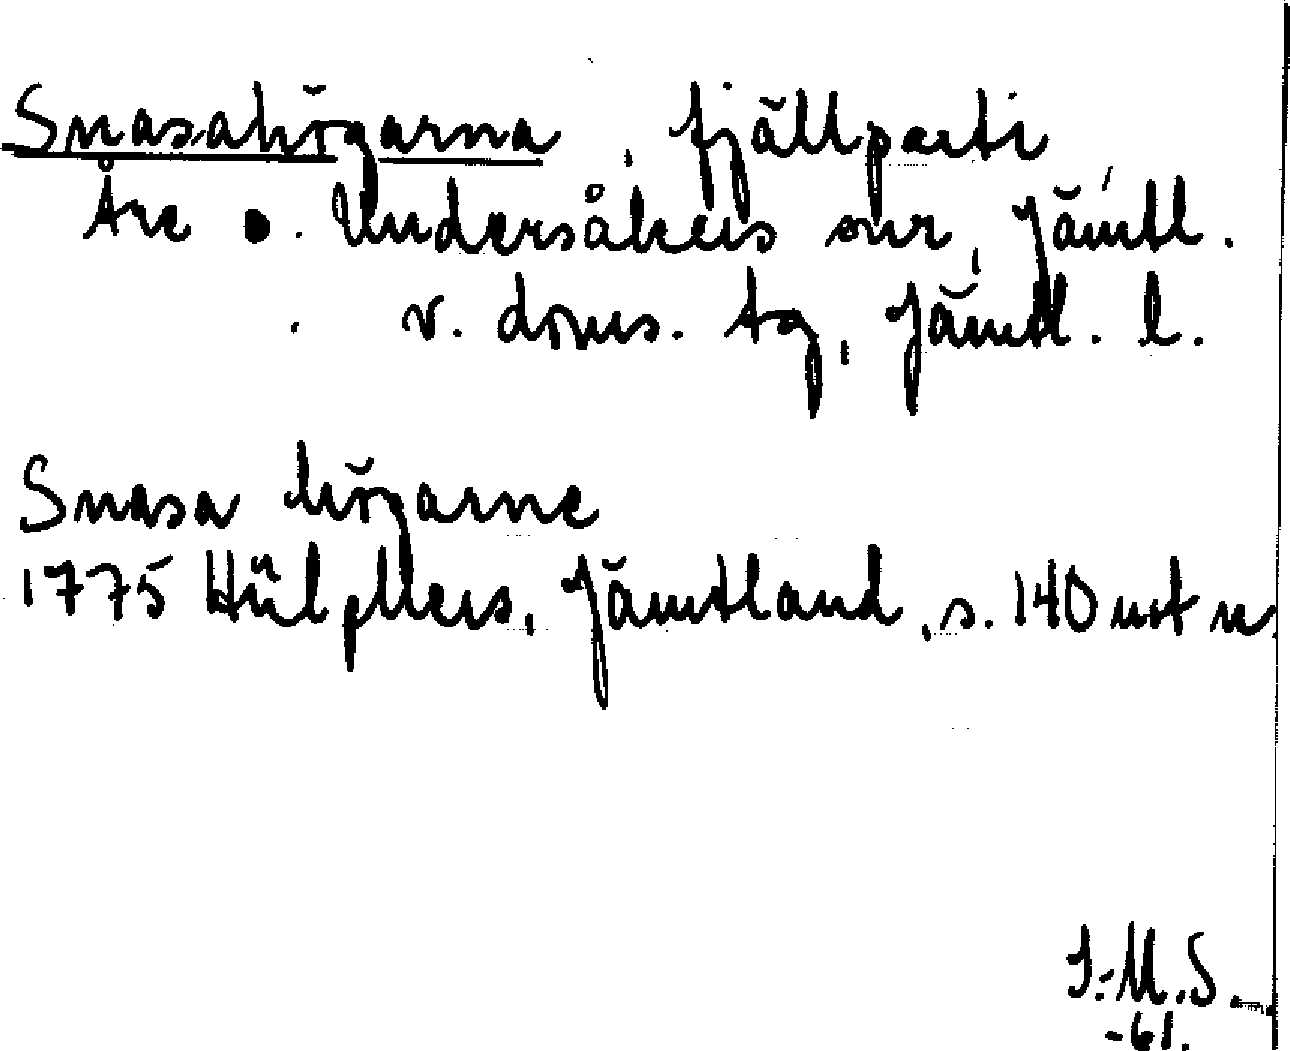 Snasahögarna, fjällparti
Åre o. Undersåkers snr, Jämtl.
v. doms. tg, Jämtl. l.
Snasa högarne
1775 Hülphers, Jämtland, s. 140 not n
I.-M.S.
-61.